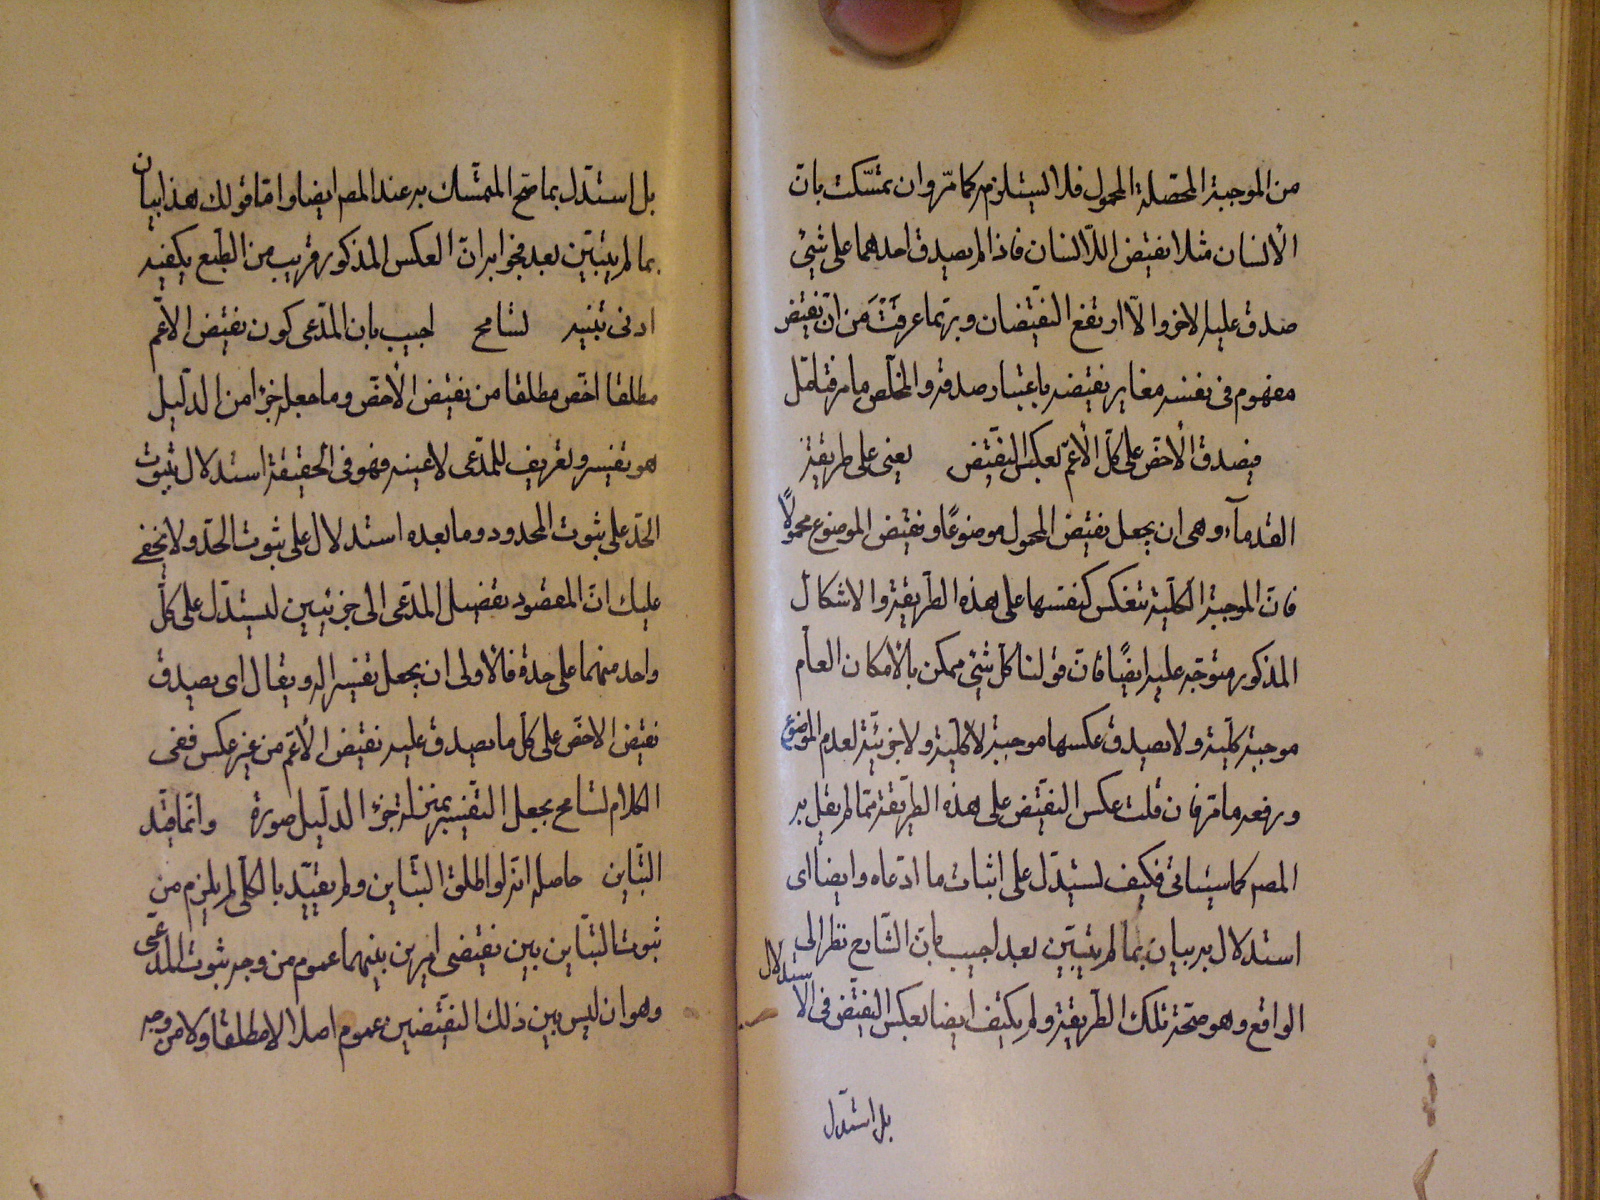 من الموجبة المحصلة المحمول فلا يستلزمه كما مرّ وان تمسّكت بانّ
الانسان مثلا نقيض اللّاانسان فاذا لم يصدق احدهما على شيئ
صدق عليه الاخر والّا ارتفع النّقيضان وبهما عرفت من انّ نقيض
مفهوم فى نفسه مغاير نقيضه باعتبار صدقه والمخلّص ما مرّ فتامّل
فيصدق الاخصّ على كلّ الاعمّ بعكس النّقيض يعنى على طريقة
القدمآء وهى ان يجعل نقيض المحمول موضوعًا ونقيض الموضوع محمولًا
فانّ الموجبة الكلّية تنعكس كنفسها على هذه الطّريقة والاشكال
المذكور متوجّه عليه ايضًا فانّ قولنا كلّ شئ ممكن بالامكان العامّ
موجبة كلّية ولا يصدق عكسها موجبة لا كلّية ولا جزئيّة لعدم الموضوع
ورفعه ما مرّ فان قلت عكس النقيض على هذه الطّريقة ممّا لم يقل به
المصر كما سيئاتى فكيف يستدلّ على اثبات ما ادّعاه وايضا اى
استدلال به بيان بما لم يتبيّن بعد اجيب بانّ الشّارح نظر الى
الواقع وهو صحّة تلك الطّريقة ولم يكتف ايضا بعكس النقيض فى الاستدلال
بل استدّل
بل استدّل بما صحّ التمسّك به عند المصر ايضا وامّا قولك هذا بيان
بما لم يتبيّن بعد فجوابه انّ العكس المذكور قريب من الطّبع يكفيه
ادنى تنبيه تسامح اجيب بان المدّعى كون نقيض الاعمّ
مطلقا اخصّ مطلقا من نقيض الاخصّ وما جعله جزءا من الدّليل
هو تفسير وتعريف للمدّعى لا عينه فهو فى الحقيقة استدلال بثبوت
الحدّ على ثبوت المحدود وما بعده استدلال على ثبوت الحدّ ولا يخفى
عليك انّ المقصود تفصيل المدّعى الى جزئيين ليستدّل على كلّ
واحد منهما على حدة فالاولى ان يجعل تفسيرا له ويقال اى يصدق
نقيض الاخصّ على كلّ ما يصدق عليه نقيض الاعمّ من غير عكس ففى
الكلام تسامح بجعل التفسير بمنزلة جزء الدّليل صورة وانّما قيّد
التّباين حاصله انّه لو اطلق التّباين ولم يقيّد بالكلّى لم يلزم من
ثبوت التّباين بين نقيضى امرين بينهما عموم من وجه ثبوت المدّعى
وهو ان ليس بين ذلك النقيضين عموم اصلا لا مطلقا ولا من وجه